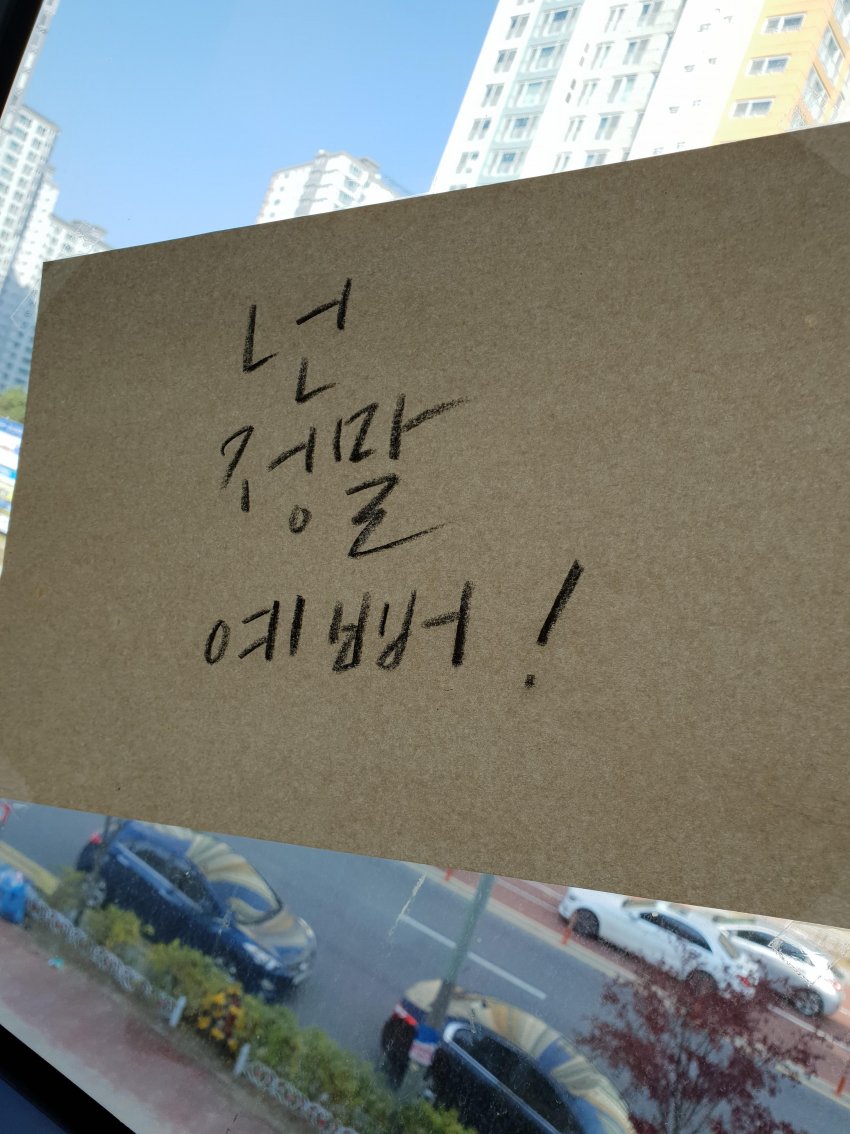 넌
정말
예뻐!